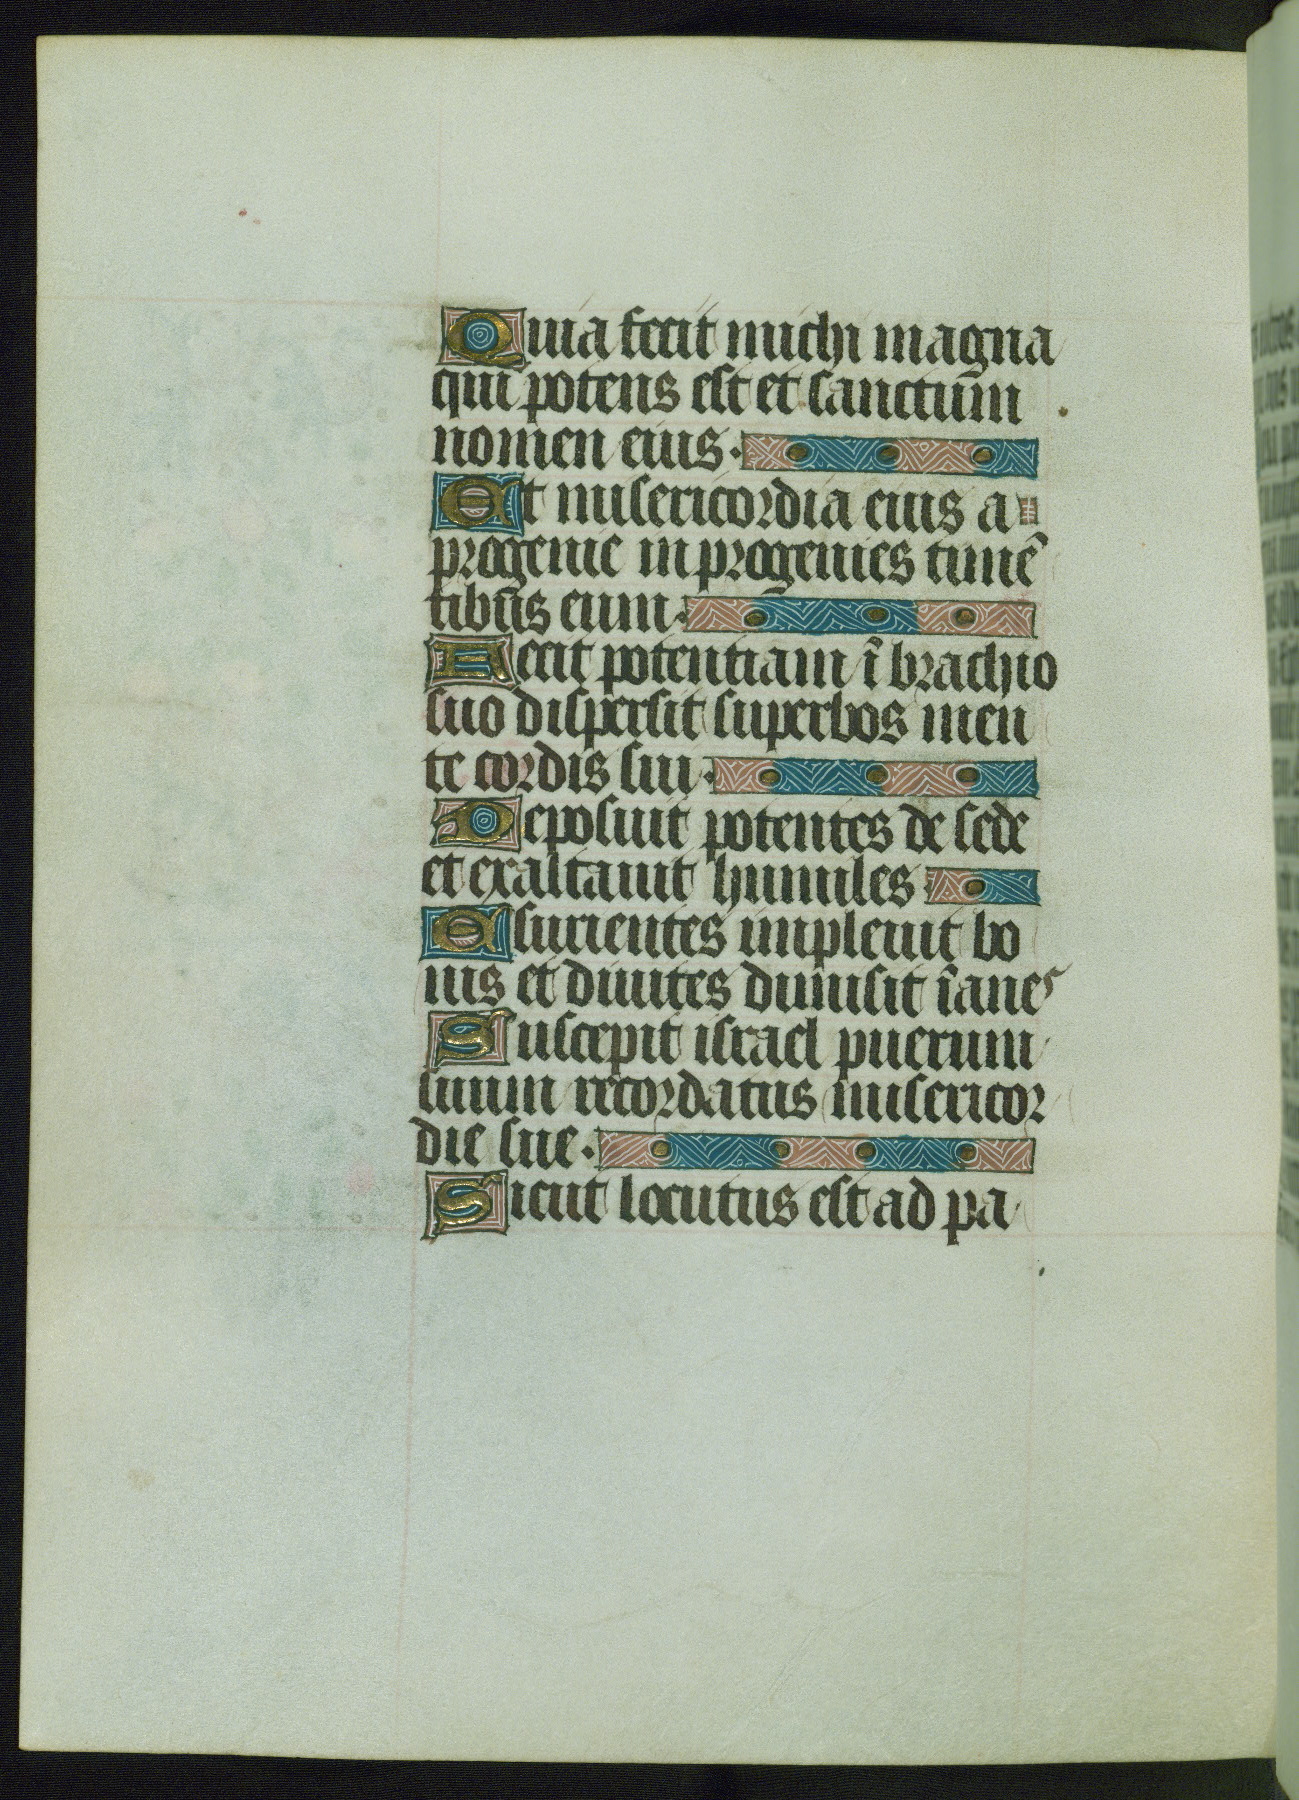 Quia fecit michi magna
qui potens est et sanctum̄
nomen eius.
Et misericordia eius a
progenie in progenies timē
tibus eum.
Fecit potentiam ī brachio
suo dispersit superbos men
te cordis sui.
Deposuit potentes de sede
et exaltauit humiles
Esurientes impleuit bo
nis et diuites dimisit īanes
Suscepit israel puerum
suum recordatus misericor
die sue.
Sicut locutus est ad pa